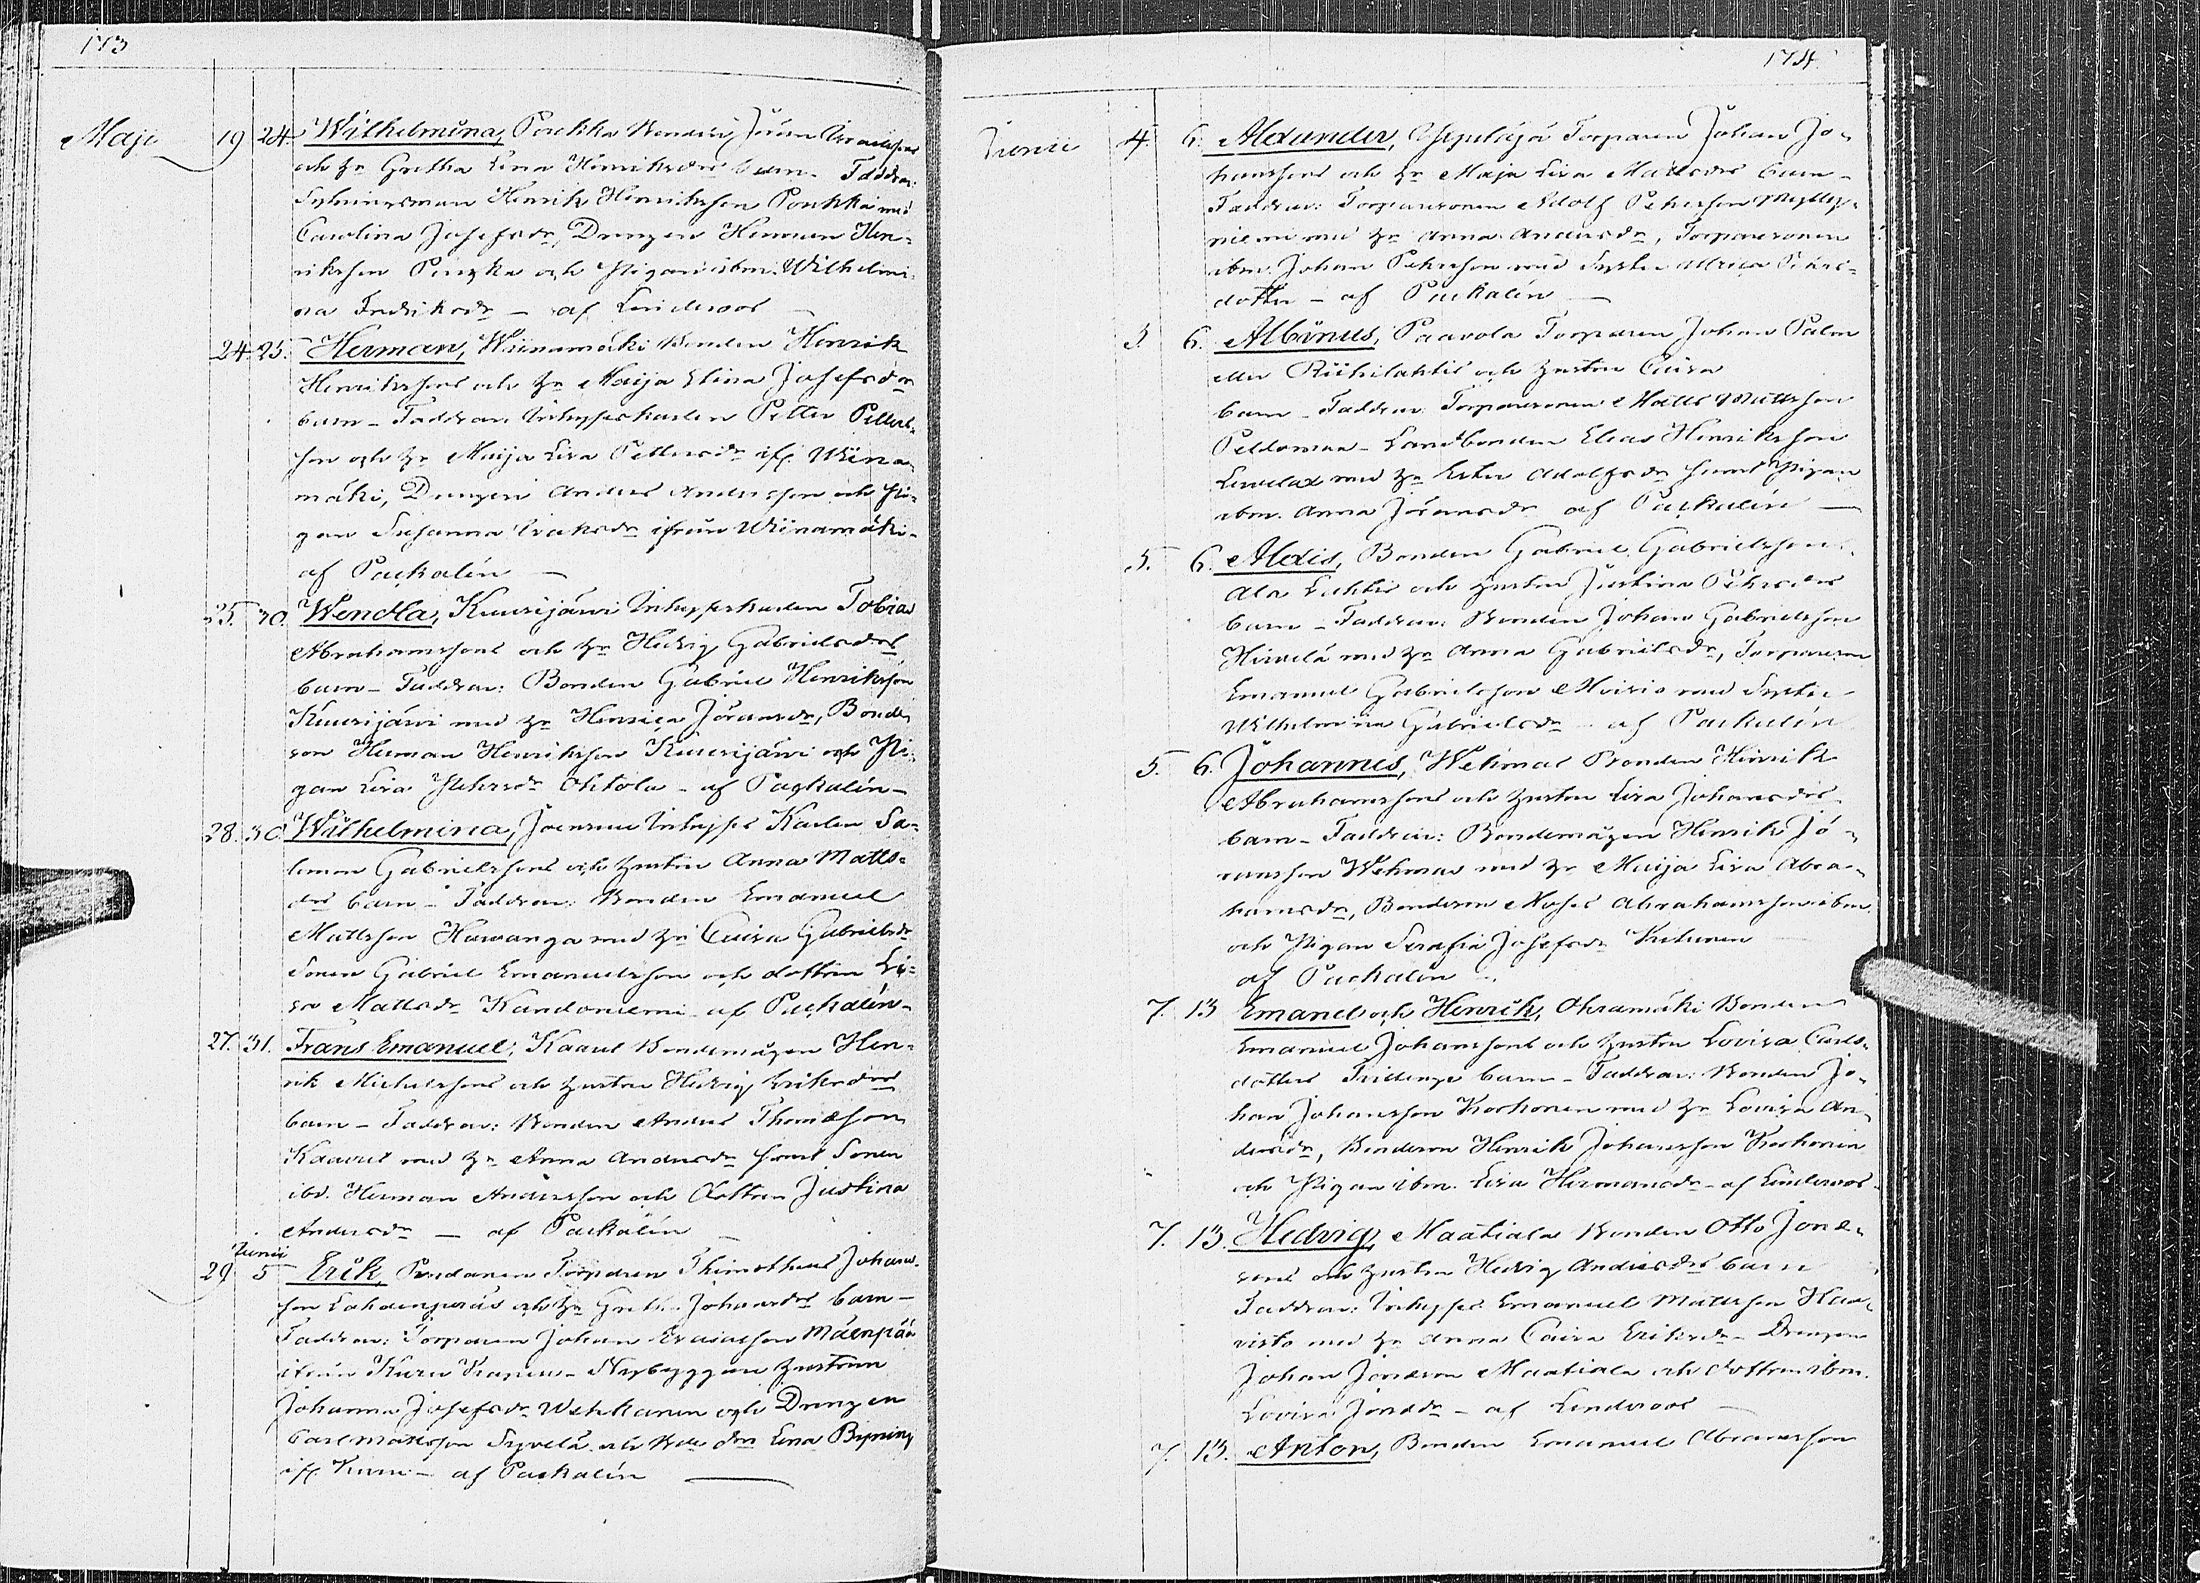 173
Maji 19 24. Wilhelmina, Poukka Bonden Jöran Israelssons
och h: Gretha Lena Henriksdrs barn. Faddrar:
Henrik Henriksson Poukka med
Carolina Josefsdr, Drengen Herman Hen-
riksson Penkka och Pigan ibm. Wilhelmi-
na Fredriksdr - af Linderoos
24. 25. Herman, Wiinamäki Bonden Henrik
Henrikssons och h: Maija Stina Josefsdrs
barn - Faddrar: Inhyseskarlen Petter Petters-
son och h: Maija Lisa Pettersdr ifr. Wiina-
mäki, Drengen Anders Andersson och Pi-
gan Susanna Isaksdr ifrån Wiinamäki -
af Packalén
25. 30. Wendla, Kuusijärvi Inhyseskarlen Tobias
Abrahamssons och h: Hedvig Gabrielsdrs
barn - Faddrar: Bonden Gabriel Henriksson
Kuusijärvi med h: Henrica Jöransdr, Bonde-
son Herman Henriksson Kuusijärvi och Pi-
gan Lisa Pehrsdr Ohtola - af Packalén -
28. 30. Wilhelmina, Joensuu Inhyses Karlen Sa-
lomon Gabrielssons och hustru Anna Matts-
drs barn - Faddrar: Bonden Emanuel
Mattsson Hawanga med h: Caisa Gabrielsdr
Sonen Gabriel Emanuelsson och dottren Li-
sa Mattsdr Kandoniemi af Packalén -
27. 31. Frans Emanuel, Kaarns Bondemågen Hen-
rik Michelssons och hustru Hedvig Eriksdrs
barn - Faddrar: Bonden Anders Thomæson
med h: Anna Andersdr samt Sonen
ibd. Herman Andersson och Dottren Justina
Andersdr - af Packalén
Junii
29 5 Erik, Torparen Thimotheus Johans-
son Lohdenperäs och h: Greta Johansdrs barn -
Faddrar: Torparen Johan Esaiasson Mäenpää
ifrån Kuru - Nybyggare hustrun
Johanna Josefsdr och Drengen
Carl Mattsson Syvelä och Lena
ifr. Kuru - af Packalén
174
Junii 4 6. Alexander, Torparen Johan Jo-
hanssons och h: Maja Lisa Mattsdrs barn -
Faddrar: Torparesonen Adolf Pehrsson Mylly-
niemi med h: Anna Andersdr, Torparesonen
ibm. Johan Pehrsson med Syster Ulrica Pehrs-
dotter - af Packalén
3. 6. Albinus, Paavola Torparen Johan Palm
eller Riihilahtis och hustru Caisa
barn - Faddrar: Torparesonen Matts Mattsson
Peldomaa - Landbonden Elias Henriksson
med h: Ester Adolfsdr samt Pigan
ibm. Anna Jöransdr af Packalén
5. 6. Alexis, Bonden Gabriel Gabrielssons
Ala Lahtis och hustru Justina Pehrsdrs
barn - Faddrar: Bonden Johan Gabrielsson
Hirvelä med h: Anna Gabrielsdr, Torparesonen
Emanuel Gabrielsson Moisio med Syster
Wilhelmina Gabrielsdr - af Packalén
5. 6. Johannes, Wehmas Bonden Henrik
Abrahamssons och hustru Lisa Johansdrs
barn - Faddrar: Bondemågen Henrik Jö-
ransson Wehmas med h: Maija Lisa Abra-
hamsdr, Bondeson Moses Abrahamsson ibm.
och Pigan Serafia Josefsdr
af Packalén
7. 13 Emanel och Henrik, Ohramäki Bonden
Emanuel Johanssons och hustru Lovisa Carls-
dotters Tvillinge barn - Faddrar: Bonden Jo-
han Johansson Korhonen med h: Lovisa An-
dersdr, Bondeson Henrik Johansson Korhonen
och Pigan ibm. Lisa Hermansdr - af Linderoos
7. 13. Hedvig, Maatiala Bonden Otto Jonæ-
sons och hustru Hedvig Andersdrs barn
Faddrar: Inhyses Emanuel Mattsson Haa-
visto med h: Anna Caisa Eriksdr - Drengen
Johan Jonæson Maatiala och dottren ibm.
Lovisa Jonædr - af Linderoos
7. 13. Anton, Bonden Emanuel Abramsson